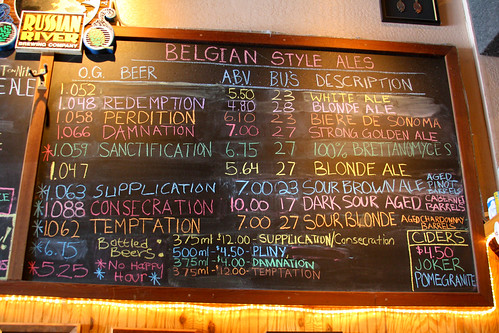 RUSSIAN
RIVER
BREWING COMPANY
BELGIAN STYLE ALES
O.G. BEER ABV. BU'S DESCRIPTION
1.052 5.50 23 WHITE ALE
1.048 REDEMPTION 4.80 28 BLONDE ALE
1.058 PERDITION 6.10 23 BIERE DE SONOMA
1.066 DAMNATION 7.00 27 STRONG GOLDEN ALE
*1.059 SANCTIFICATION 6.75 27 100% BRETTANOMYCES
1.047 5.64 27 BLONDE ALE
*1.063 SUPPLICATION 7.00 23 SOUR BROWN ALE AGED PINOT BARRELS
*1.088 CONSECRATION 10.00 17 DARK SOUR AGED CABERNET BARRELS
*1.062 TEMPTATION 7.00 27 SOUR BLONDE AGED CHARDONNAY BARRELS
*6.75 Bottled Beers: 375ml-$12.00-SUPPLICATION/Consecration
500ml-$4.50-PLINY
*5.25 *No Happy Hour* 375ml-$4.00-DAMNATION
375ml-$12.00-TEMPTATION
CIDERS
$4.50
JOKER
POMEGRANITE